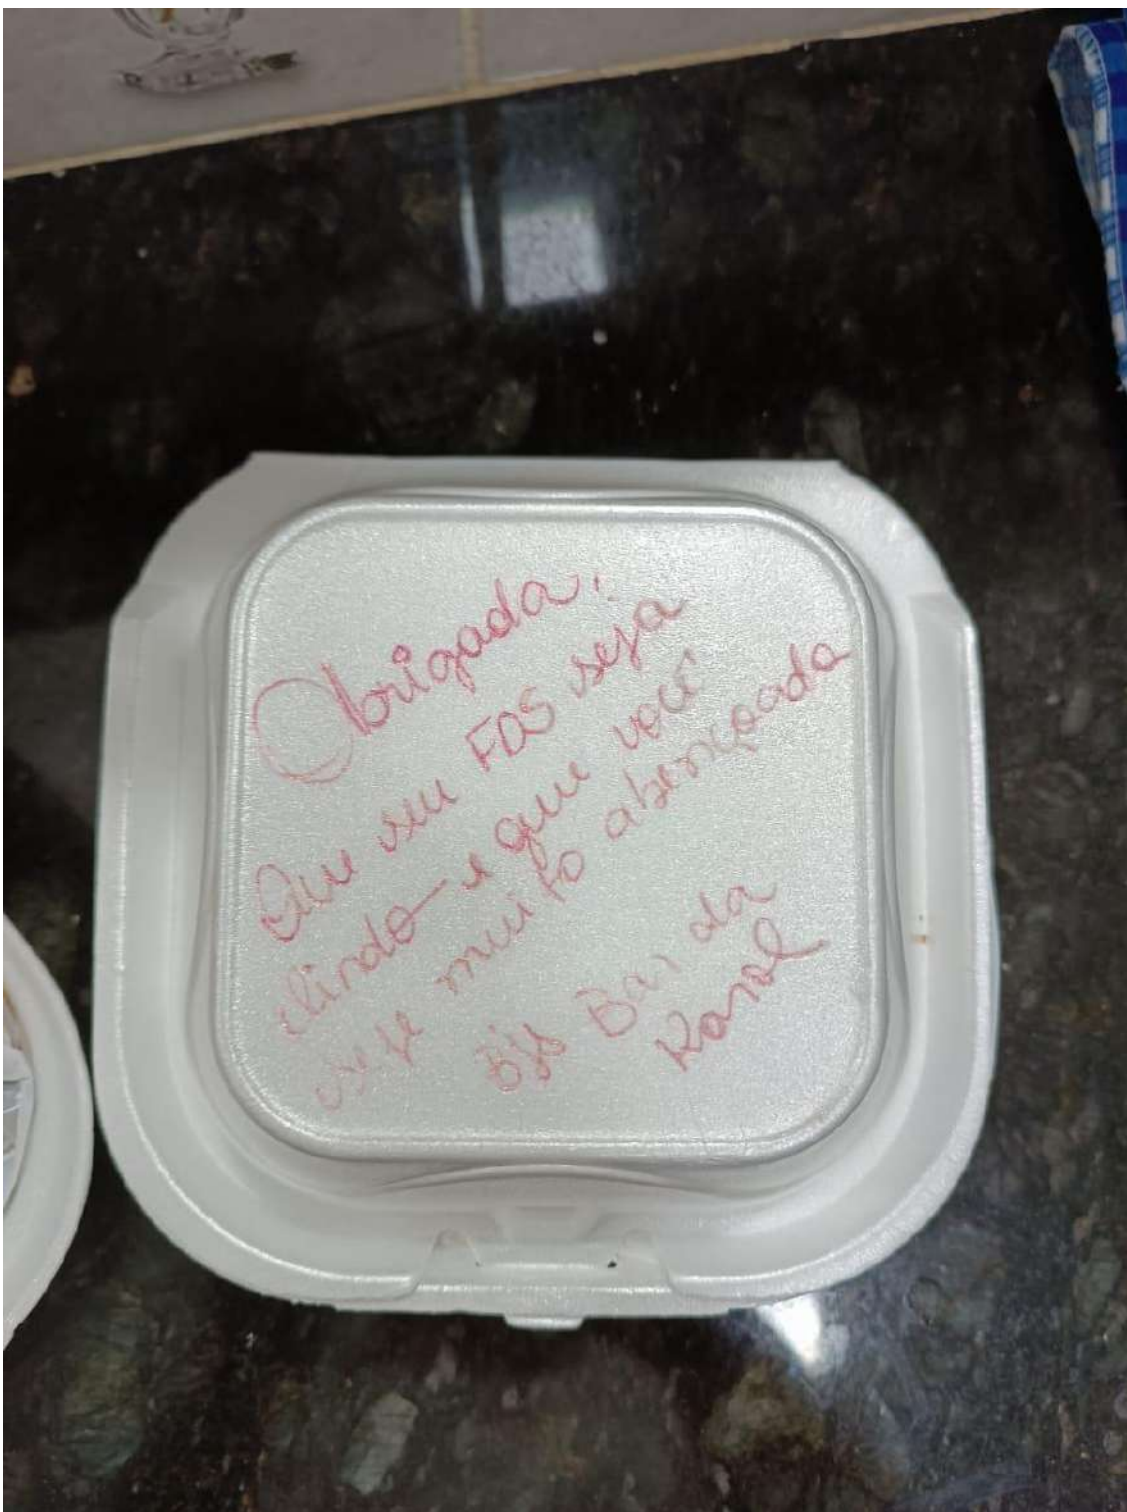 Obrigada!
Que seu FDS seja
lindo e que você
seje muito abençoada
Bjs Bar da
Karol